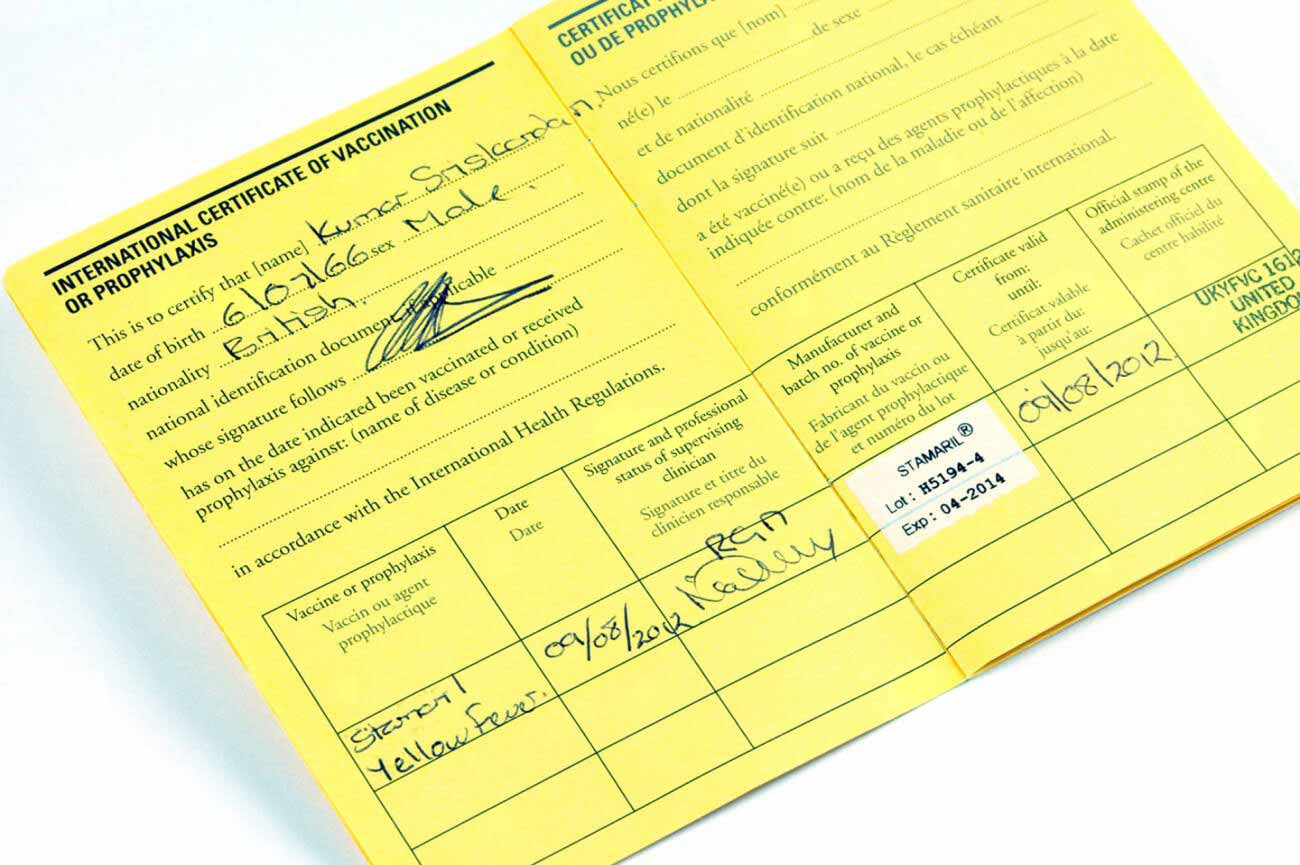 INTERNATIONAL CERTIFICATE OF VACCINATION
OR PROPHYLAXIS
This is to certify that [name] Kumar Sriskandan
date of birth 6/07/66 sex Male.
nationality British.
national identification document, if applicable
whose signature follows
has on the date indicated been vaccinated or received
prophylaxis against: (name of disease or condition)
in accordance with the International Health Regulations.
Vaccine or prophylaxis
Vaccin ou agent
prophylactique
Date
Date
Signature and professional
status of supervising
clinician
Signature et titre du
clinicien responsable
Stamaril
Yellow Fever.
09/08/2012
RGN
CERTIFICAT
OU DE PROPHYLA
Nous certifions que [nom]
né(e) le de sexe
et de nationalité
document d'identification national, le cas échéant
dont la signature suit
a été vacciné(e) ou a reçu des agents prophylactiques à la date
indiquée contre: (nom de la maladie ou de l'affection)
conformément au Règlement sanitaire international.
Manufacturer and
batch no. of vaccine or
prophylaxis
Fabricant du vaccin ou
de l'agent prophylactique
et numéro du lot
Certificate valid
from:
until:
Certificat valable
à partir du:
jusqu'au:
Official stamp of the
administering centre
Cachet officiel du
centre habilité
STAMARIL®
Lot: H5194-4
Exp: 04-2014
09/08/2012
UKYFVC 1612
UNITED
KINGDO